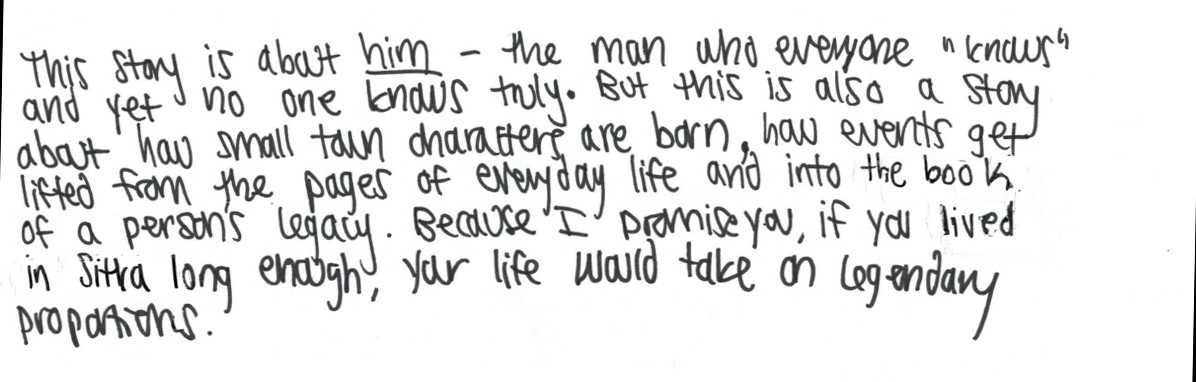 This story is about him – the man who everyone "knows"
and yet no one knows truly. But this is also a story
about how small town characters are born, how events get
lifted from the pages of everyday life and into the book
of a person's legacy. Because I promise you, if you lived
in Sitka long enough, your life would take on legendary
proportions.